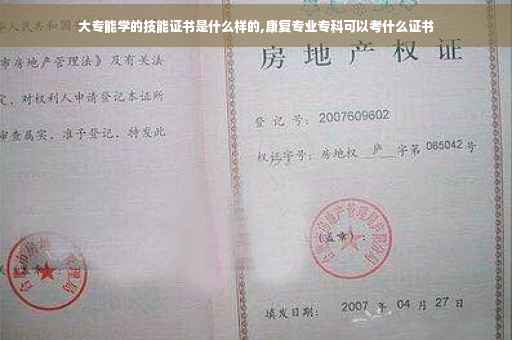 大专能学的技能证书是什么样的,康复专业专科可以考什么证书
人民共和国
市房地产管理法》及有关法
定，对权利人申请登记本证所
审查属实，准予登记，特发此
房地产权证
登记号：2007609602
权证字号：房地权 庐 字第 085042 号
(盖章)：
填发日期： 2007 年 04 月 27 日